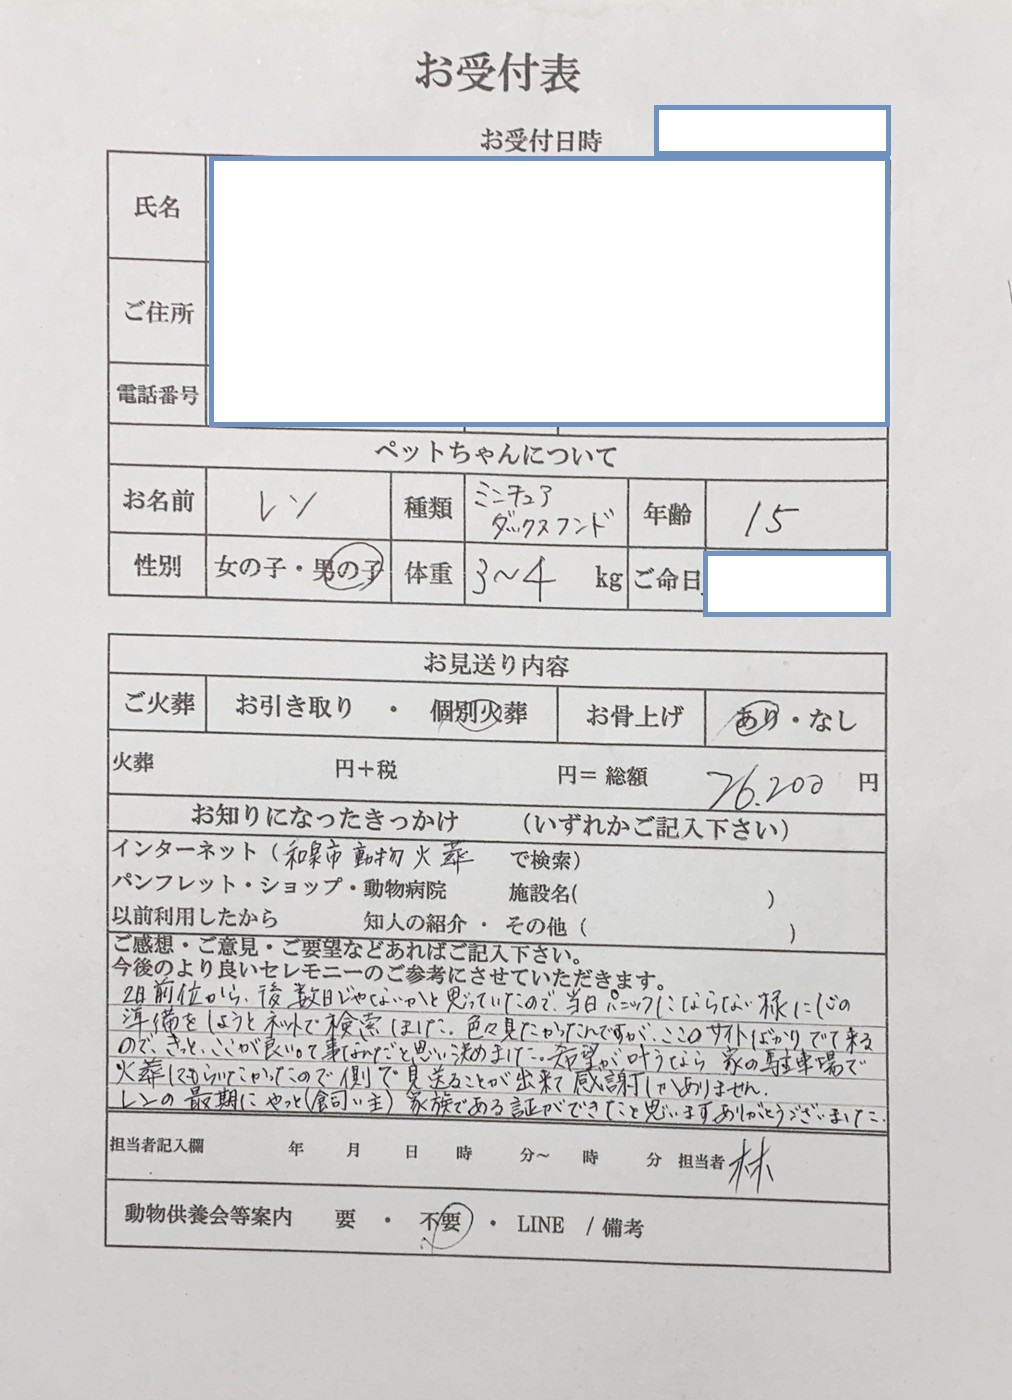 お受付表
お受付日時
氏名
ご住所
電話番号
ペットちゃんについて
お名前 レン 種類 ミニチュア ダックスフンド 年齢 15
性別 女の子・男の子 体重 3～4 kg ご命日
お見送り内容
ご火葬 お引き取り ・ 個別火葬 お骨上げ あり・なし
火葬 円＋税 円＝ 総額 26.200 円
お知りになったきっかけ （いずれかご記入下さい）
インターネット（和泉市 動物火葬 で検索）
パンフレット・ショップ・動物病院 施設名( )
以前利用したから 知人の紹介 ・ その他（ ）
ご感想・ご意見・ご要望などあればご記入下さい。
今後のより良いセレモニーのご参考にさせていただきます。
2日前位から、後数日じゃないかと思っていたので、当日パニックにならない様に心の
準備をしようとネットで検索しました。色々見たかったんですが、ここのサイトばかりでて来る
ので、きっと、ここが良いって事なんだと思い決めました。希望が叶うなら家の駐車場で
火葬してもらいたかったので側で見送ることが出来て感謝しかありません。
レンの最期にやっと(飼い主)家族である証ができたと思いますありがとうございました。
担当者記入欄 年 月 日 時 分～ 時 分 担当者 林
動物供養会等案内 要 ・ 不要 ・ LINE / 備考